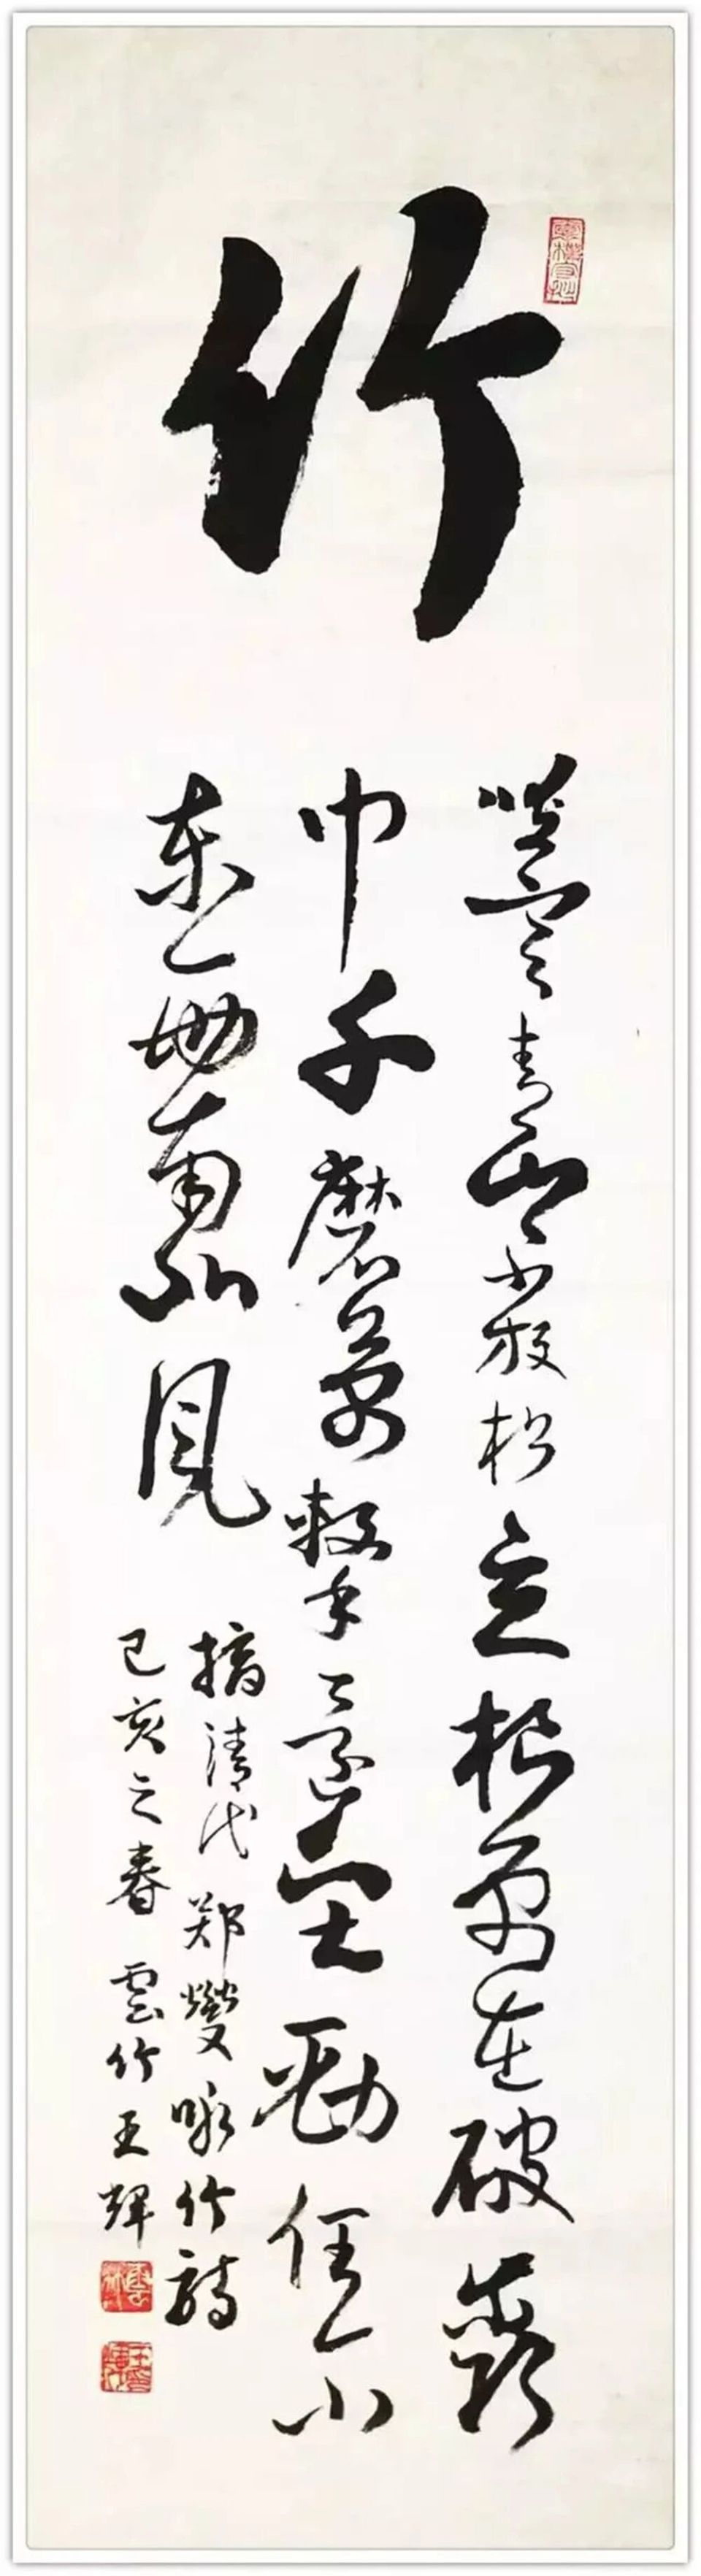 竹
咬定青山不放松立根原在破巖
中千磨萬擊還堅勁任尔
东西南北風
摘清代郑燮咏竹诗
己亥之春 雲竹王輝